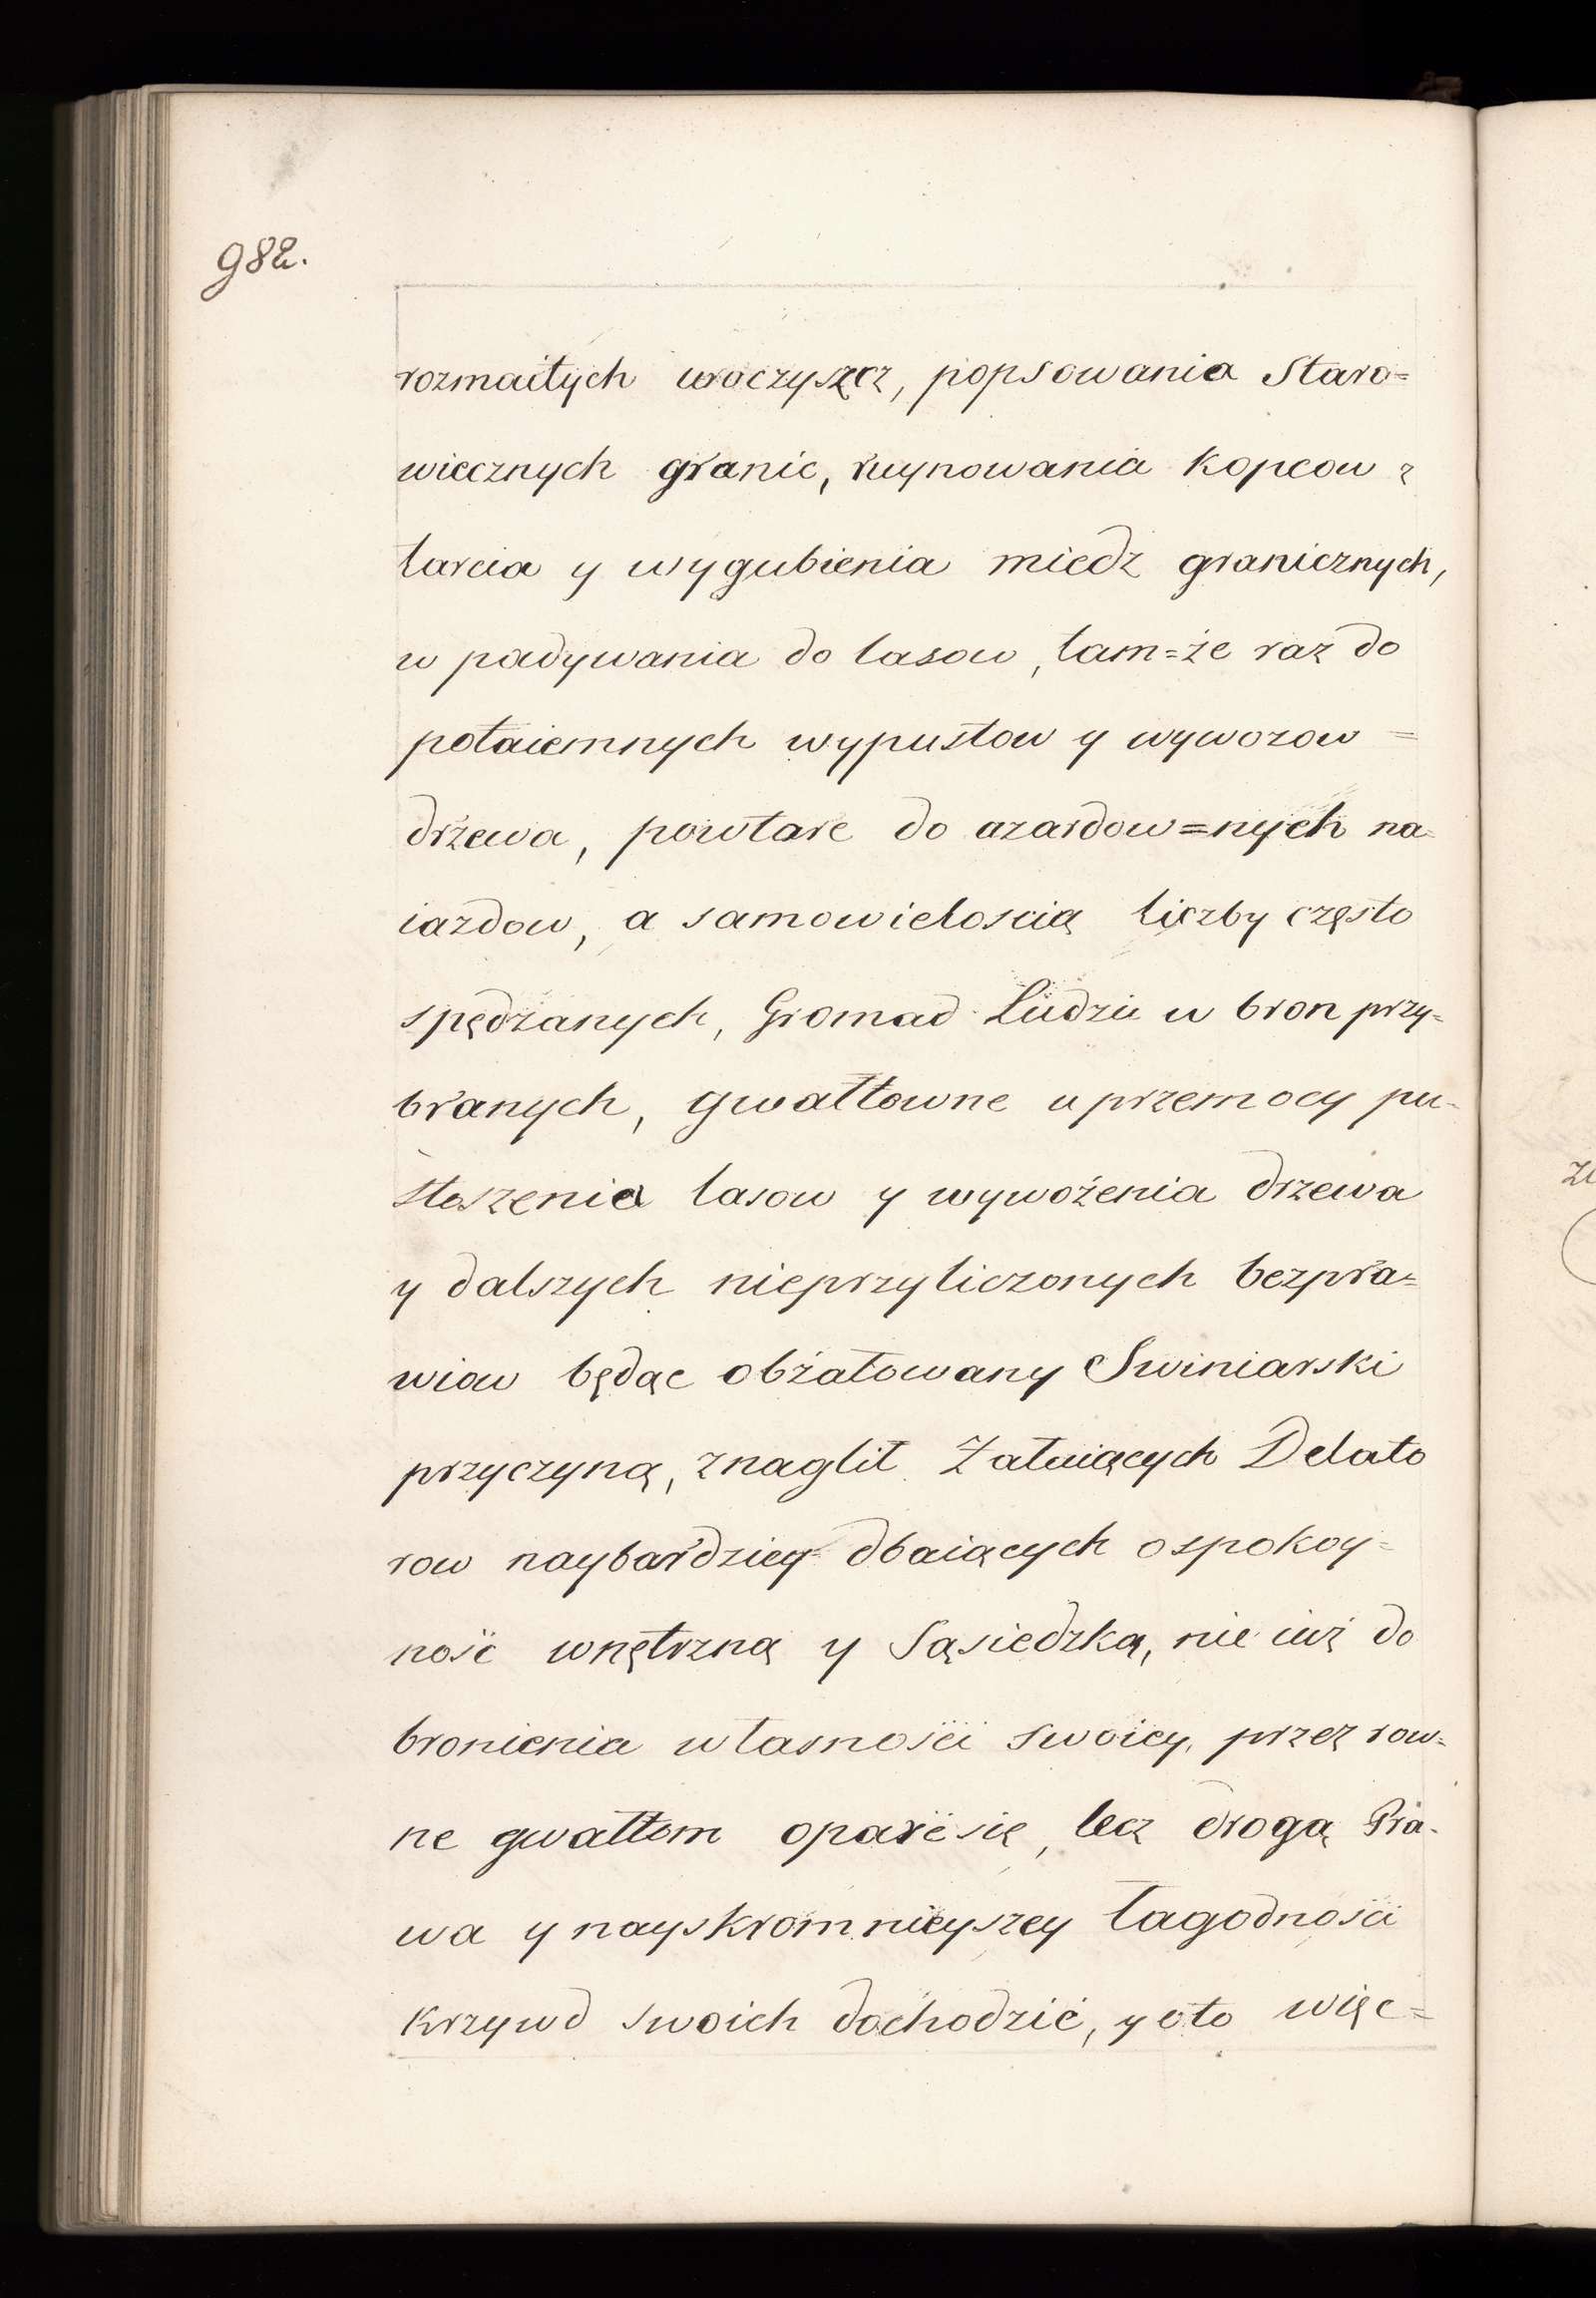 982.
rozmaitych uroczyszcz, popsowania Staro=
wiecznych granic, ruynowania Kopcow z
tarcia y wygubienia miedz granicznych,
w padywania do lasow, tam=że raz do
potaiemnych wypustow y wywozow =
drzewa, powtare do azardow=nych na=
iazdow, a samowieloscią liczby często
spędzanych, Gromad Ludzii w bron przy=
branych, gwałtowne u przemocy pu=
stoszenia lasow y wywożenia drzewa
y dalszych nieprzyliczonych bezpra=
wiow będąc obżałowany Swiniarski
przyczyną, znaglił Załuiących Delato
row naybardziey dbaiących o spokoy=
ność wnętrzną y Sąsiedzką, nie iuż do
bronienia własności swoiey, przez row=
ne gwałtom oparcie się, lecz drogą Pra=
wa y nayskromnieyszey łagodności
Krzywd swoich dochodzić, y oto więc=